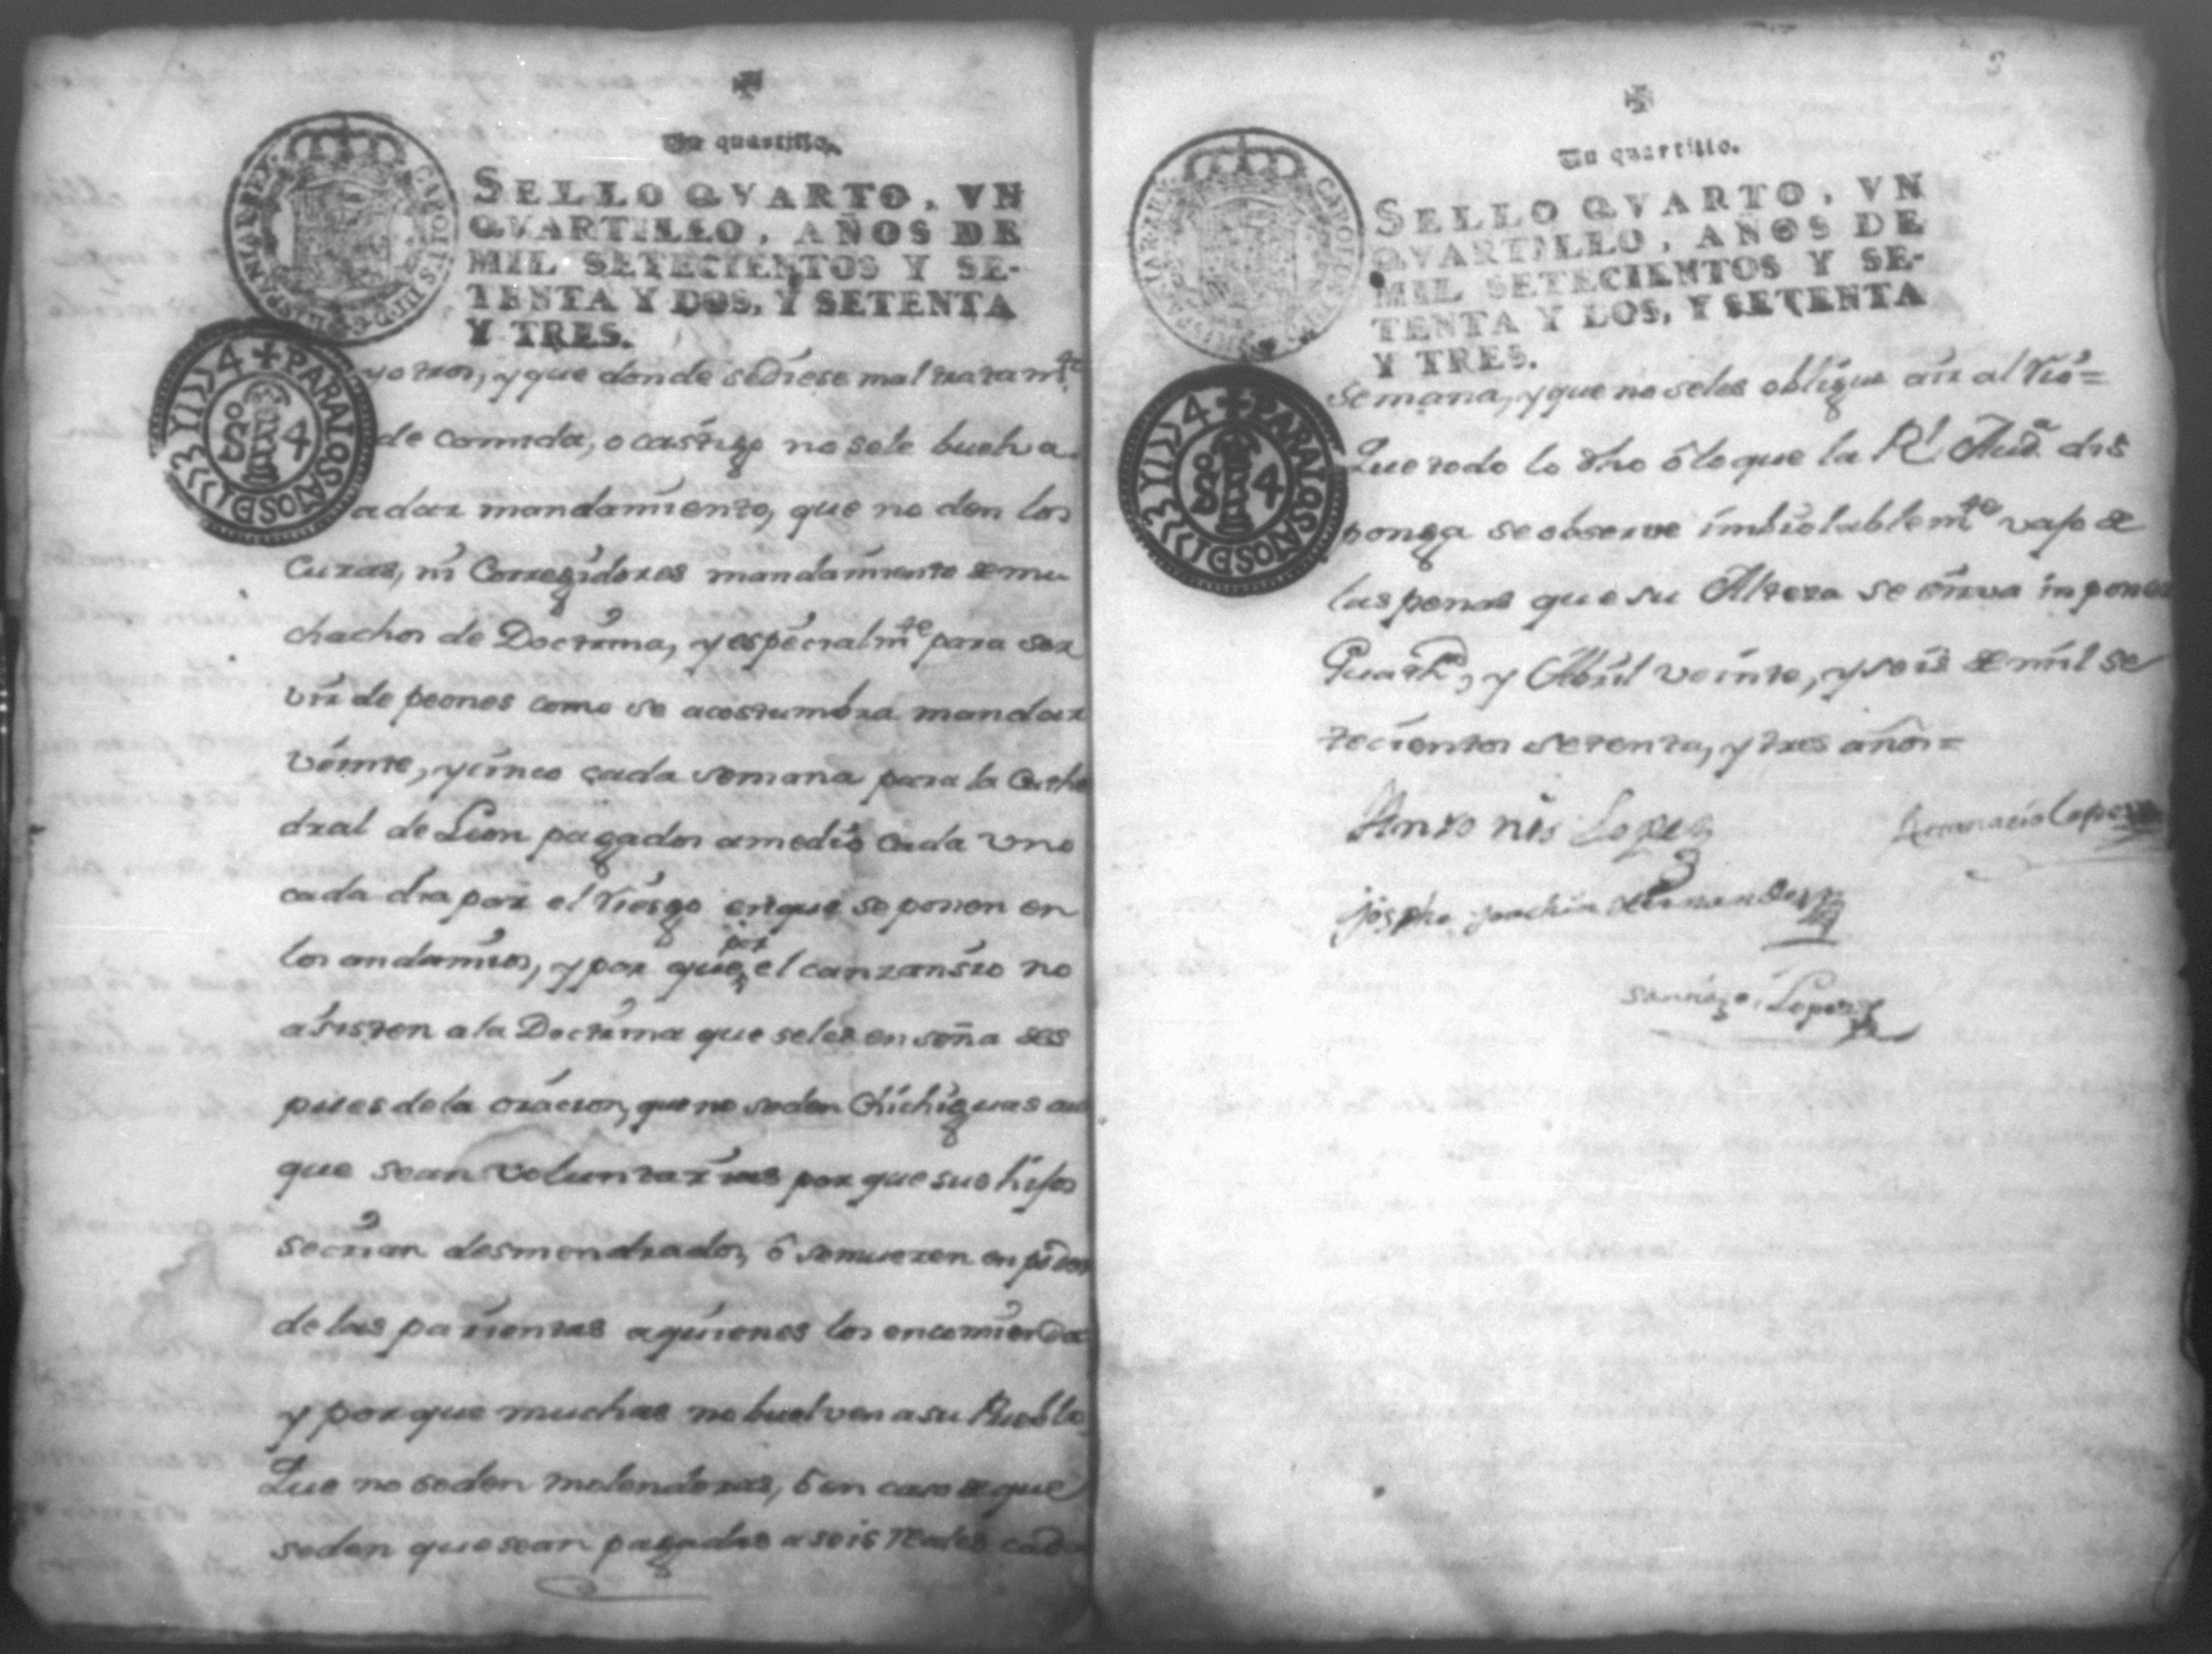 Un quartillo.
SELLO QVARTO, VN
QVARTILLO, AÑOS DE
MIL SETECIENTOS Y SE-
TENTA Y DOS, Y SETENTA
Y TRES.
HISPANIAR REX CAROLUS III D G
+ PARA LOS AÑOS DE 1774
S 4
yotros, y que donde se diese mal tratam.to
de comida, o castigo no sele buelva
a dar mandamiento, que no den los
Curas, ni Corregidores mandamiento de mu
chachos de Doctrina, y especialm.te para ser
vir de peones como se acostumbra mandar
veinte, y cinco cada semana para la Cathe
dral de Leon pagados a medio cada uno
cada dia por el riesgo en que se ponen en
los andamios, y por que por el canzansio no
asisten a la Doctrina que seles enseña des
pues de la oracion, que no se den Chichiguas aun
que sean voluntarias por que sus hijos
secrian desmendrados, ô se mueren en poder
de las parientas a quienes los encomiendan
y por que muchas no buelven a su Pueblo
Que no seden molenderas, ô en caso de que
seden que sean pagadas a seis reales cada
Un quartillo.
SELLO QVARTO, VN
QVARTILLO, AÑOS DE
MIL SETECIENTOS Y SE-
TENTA Y DOS, Y SETENTA
Y TRES.
HISPANIAR REX CAROLUS III D G
+ PARA LOS AÑOS DE 1774
S 4
semana, y que no seles obligue a ir al Rio=
Que todo lo dho ô lo que la R.l Aud.a dis
ponga se observe imbiolablem.te vajo de
las penas que su Alteza se sirva inponer
Guath.a, y Abril veinte, y seis de mil se
tecientos setenta, y tres años=
Antonio Lopez
Lopez
Josphe Joachin Hernandez
Santiago Lopez